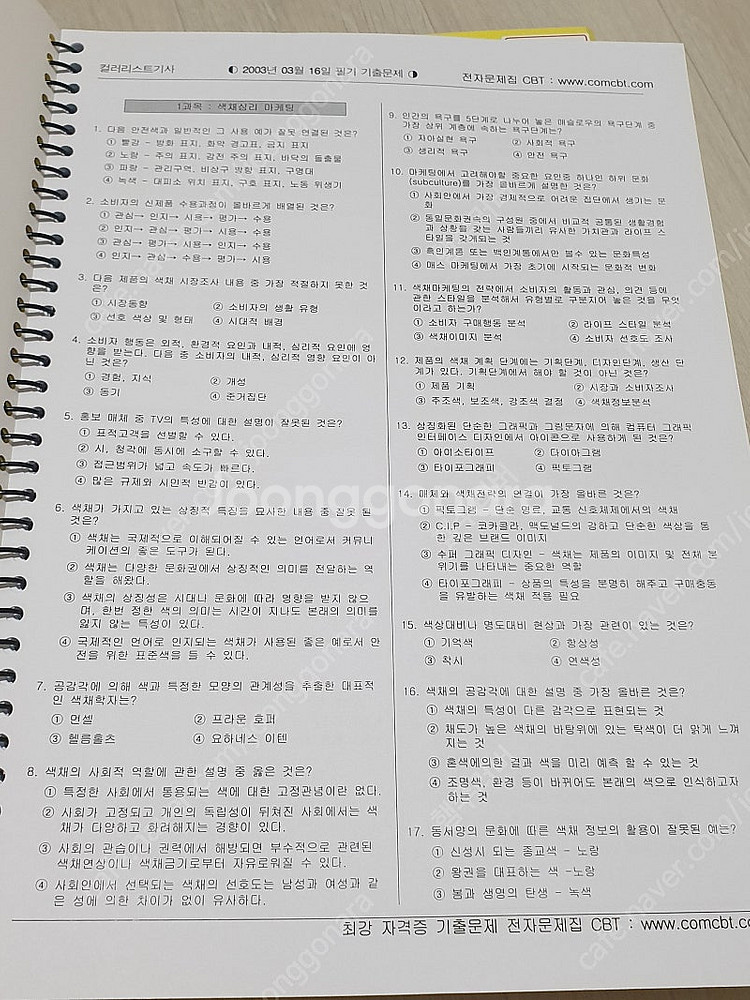 컬러리스트기사
◐ 2003년 03월 16일 필기 기출문제 ◑
전자문제집 CBT : www.comcbt.com
1과목 : 색채심리 마케팅
1. 다음 안전색과 일반적인 그 사용 예가 잘못 연결된 것은?
① 빨강 - 방화 표지, 화약 경고표, 금지 표지
② 노랑 - 주의 표지, 감전 주의 표지, 바닥의 돌출물
③ 파랑 - 관리구역, 비상구 방향 표지, 구명대
④ 녹색 - 대피소 위치 표지, 구호 표지, 노동 위생기
2. 소비자의 신제품 수용과정이 올바르게 배열된 것은?
① 관심→ 인지→ 시용→ 평가→ 수용
② 인지→ 관심→ 평가→ 시용→ 수용
③ 관심→ 평가→ 시용→ 인지→ 수용
④ 인지→ 수용→ 관심→ 시용→ 평가
3. 다음 제품의 색채 시장조사 내용 중 가장 적절하지 못한 것
은?
① 시장동향
② 소비자의 생활 유형
③ 선호 색상 및 형태
④ 시대적 배경
4. 소비자 행동은 외적, 환경적 요인과 내적, 심리적 요인에 영
향을 받는다. 다음 중 소비자의 내적, 심리적 영향 요인이 아
닌 것은?
① 경험, 지식
② 개성
③ 동기
④ 준거집단
5. 홍보 매체 중 TV의 특성에 대한 설명이 잘못된 것은?
① 표적고객을 선별할 수 있다.
② 시, 청각에 동시에 소구할 수 있다.
③ 접근범위가 넓고 속도가 빠르다.
④ 많은 규제와 시민적 반감이 있다.
6. 색채가 가지고 있는 상징적 특징을 묘사한 내용 중 잘못 된
것은?
① 색채는 국제적으로 이해되어질 수 있는 언어로서 커뮤니
케이션의 좋은 도구가 된다.
② 색채는 다양한 문화권에서 상징적인 의미를 전달하는 역
할을 해왔다.
③ 색채의 상징성은 시대나 문화에 따라 영향을 받지 않으
며, 한번 정한 색의 의미는 시간이 지나도 본래의 의미를
잃지 않는 특성이 있다.
④ 국제적인 언어로 인지되는 색채가 사용된 좋은 예로서 안
전을 위한 표준색을 들 수 있다.
7. 공감각에 의해 색과 특정한 모양의 관계성을 추출한 대표적
인 색채학자는?
① 먼셀
② 프라운 호퍼
③ 헬름홀츠
④ 요하네스 이텐
8. 색채의 사회적 역할에 관한 설명 중 옳은 것은?
① 특정한 사회에서 통용되는 색에 대한 고정관념이란 없다.
② 사회가 고정되고 개인의 독립성이 뒤쳐진 사회에서는 색
채가 다양하고 화려해지는 경향이 있다.
③ 사회의 관습이나 권력에서 해방되면 부수적으로 관련된
색채연상이나 색채금기로부터 자유로워질 수 있다.
④ 사회인에서 선택되는 색채의 선호도는 남성과 여성과 같
은 성에 의한 차이가 없이 유사하다.
9. 인간의 욕구를 5단계로 나누어 놓은 매슬로우의 욕구단계 중
가장 상위 계층에 속하는 욕구단계는?
① 자아실현 욕구
② 사회적 욕구
③ 생리적 욕구
④ 안전 욕구
10. 마케팅에서 고려해야할 중요한 요인중 하나인 하위 문화
(subculture)를 가장 올바르게 설명한 것은?
① 사회안에서 가장 경제적으로 어려운 집단에서 생기는 문
화
② 동일문화권속의 구성원 중에서 비교적 공통된 생활경험
과 상황을 갖는 사람들끼리 유사한 가치관과 라이프 스
타일을 갖게되는 것
③ 흑인계통 또는 백인계통에서만 볼수 있는 문화특성
④ 매스 마케팅에서 가장 초기에 시작되는 문화적 변화
11. 색채마케팅의 전략에서 소비자의 활동과 관심, 의견 등에
관한 스타일을 분석해서 유형별로 구분지어 놓은 것을 무엇
이라고 하는가?
① 소비자 구매행동 분석
② 라이프 스타일 분석
③ 색채이미지 분석
④ 소비자 선호도 조사
12. 제품의 색채 계획 단계에는 기획단계, 디자인단계, 생산 단
계가 있다. 기획단계에서 해야 할 것이 아닌 것은?
① 제품 기획
② 시장과 소비자조사
③ 주조색, 보조색, 강조색 결정
④ 색채정보분석
13. 상징화된 단순한 그래픽과 그림문자에 의해 컴퓨터 그래픽
인터페이스 디자인에서 아이콘으로 사용하게 된 것은?
① 아이소타이프
② 다이아그램
③ 타이포그래피
④ 픽토그램
14. 매체와 색채전략의 연결이 가장 올바른 것은?
① 픽토그램 - 단순 명료, 교통 신호체제에서의 색채
② C.I.P - 코카콜라, 맥도널드의 강하고 단순한 색상을 통
한 깊은 브랜드 이미지
③ 수퍼 그래픽 디자인 - 색채는 제품의 이미지 및 전체 분
위기를 나타내는 중요한 역할
④ 타이포그래피 - 상품의 특성을 분명히 해주고 구매충동
을 유발하는 색채 적용 필요
15. 색상대비나 명도대비 현상과 가장 관련이 있는 것은?
① 기억색
② 항상성
③ 착시
④ 연색성
16. 색채의 공감각에 대한 설명 중 가장 올바른 것은?
① 색채의 특성이 다른 감각으로 표현되는 것
② 채도가 높은 색채의 바탕위에 있는 탁색이 더 맑게 느껴
지는 것
③ 혼색에의한 결과 색을 미리 예측 할 수 있는 것
④ 조명색, 환경 등이 바뀌어도 본래의 색으로 인식하고자
하는 것
17. 동서양의 문화에 따른 색채 정보의 활용이 잘못된 예는?
① 신성시 되는 종교색 - 노랑
② 왕권을 대표하는 색 -노랑
③ 봄과 생명의 탄생 - 녹색
최강 자격증 기출문제 전자문제집 CBT : www.comcbt.co